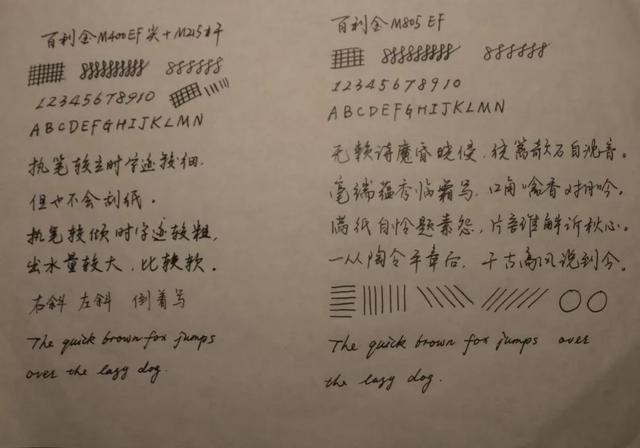 百利金M400EF尖+M215杆
8888888888 888888
12345678910
ABCDEFGHIJKLMN
执笔较立时字迹较细.
但也不会刮纸。
执笔较倾时字迹较粗,
出水量较大,比较软。
右斜 左斜 倒着写
The quick brown fox jumps
over the lazy dog.
百利金M805 EF
8888888888 888888
12345678910
ABCDEFGHIJKLMN
无赖诗魔昏晓侵.绕篱欹石自沉音。
毫端蕴秀临霜写.口角噙香对月吟。
满纸自怜题素怨,片言谁解诉秋心。
一从陶令平章后.千古高风说到今。
The quick brown fox jumps over
the lazy dog.